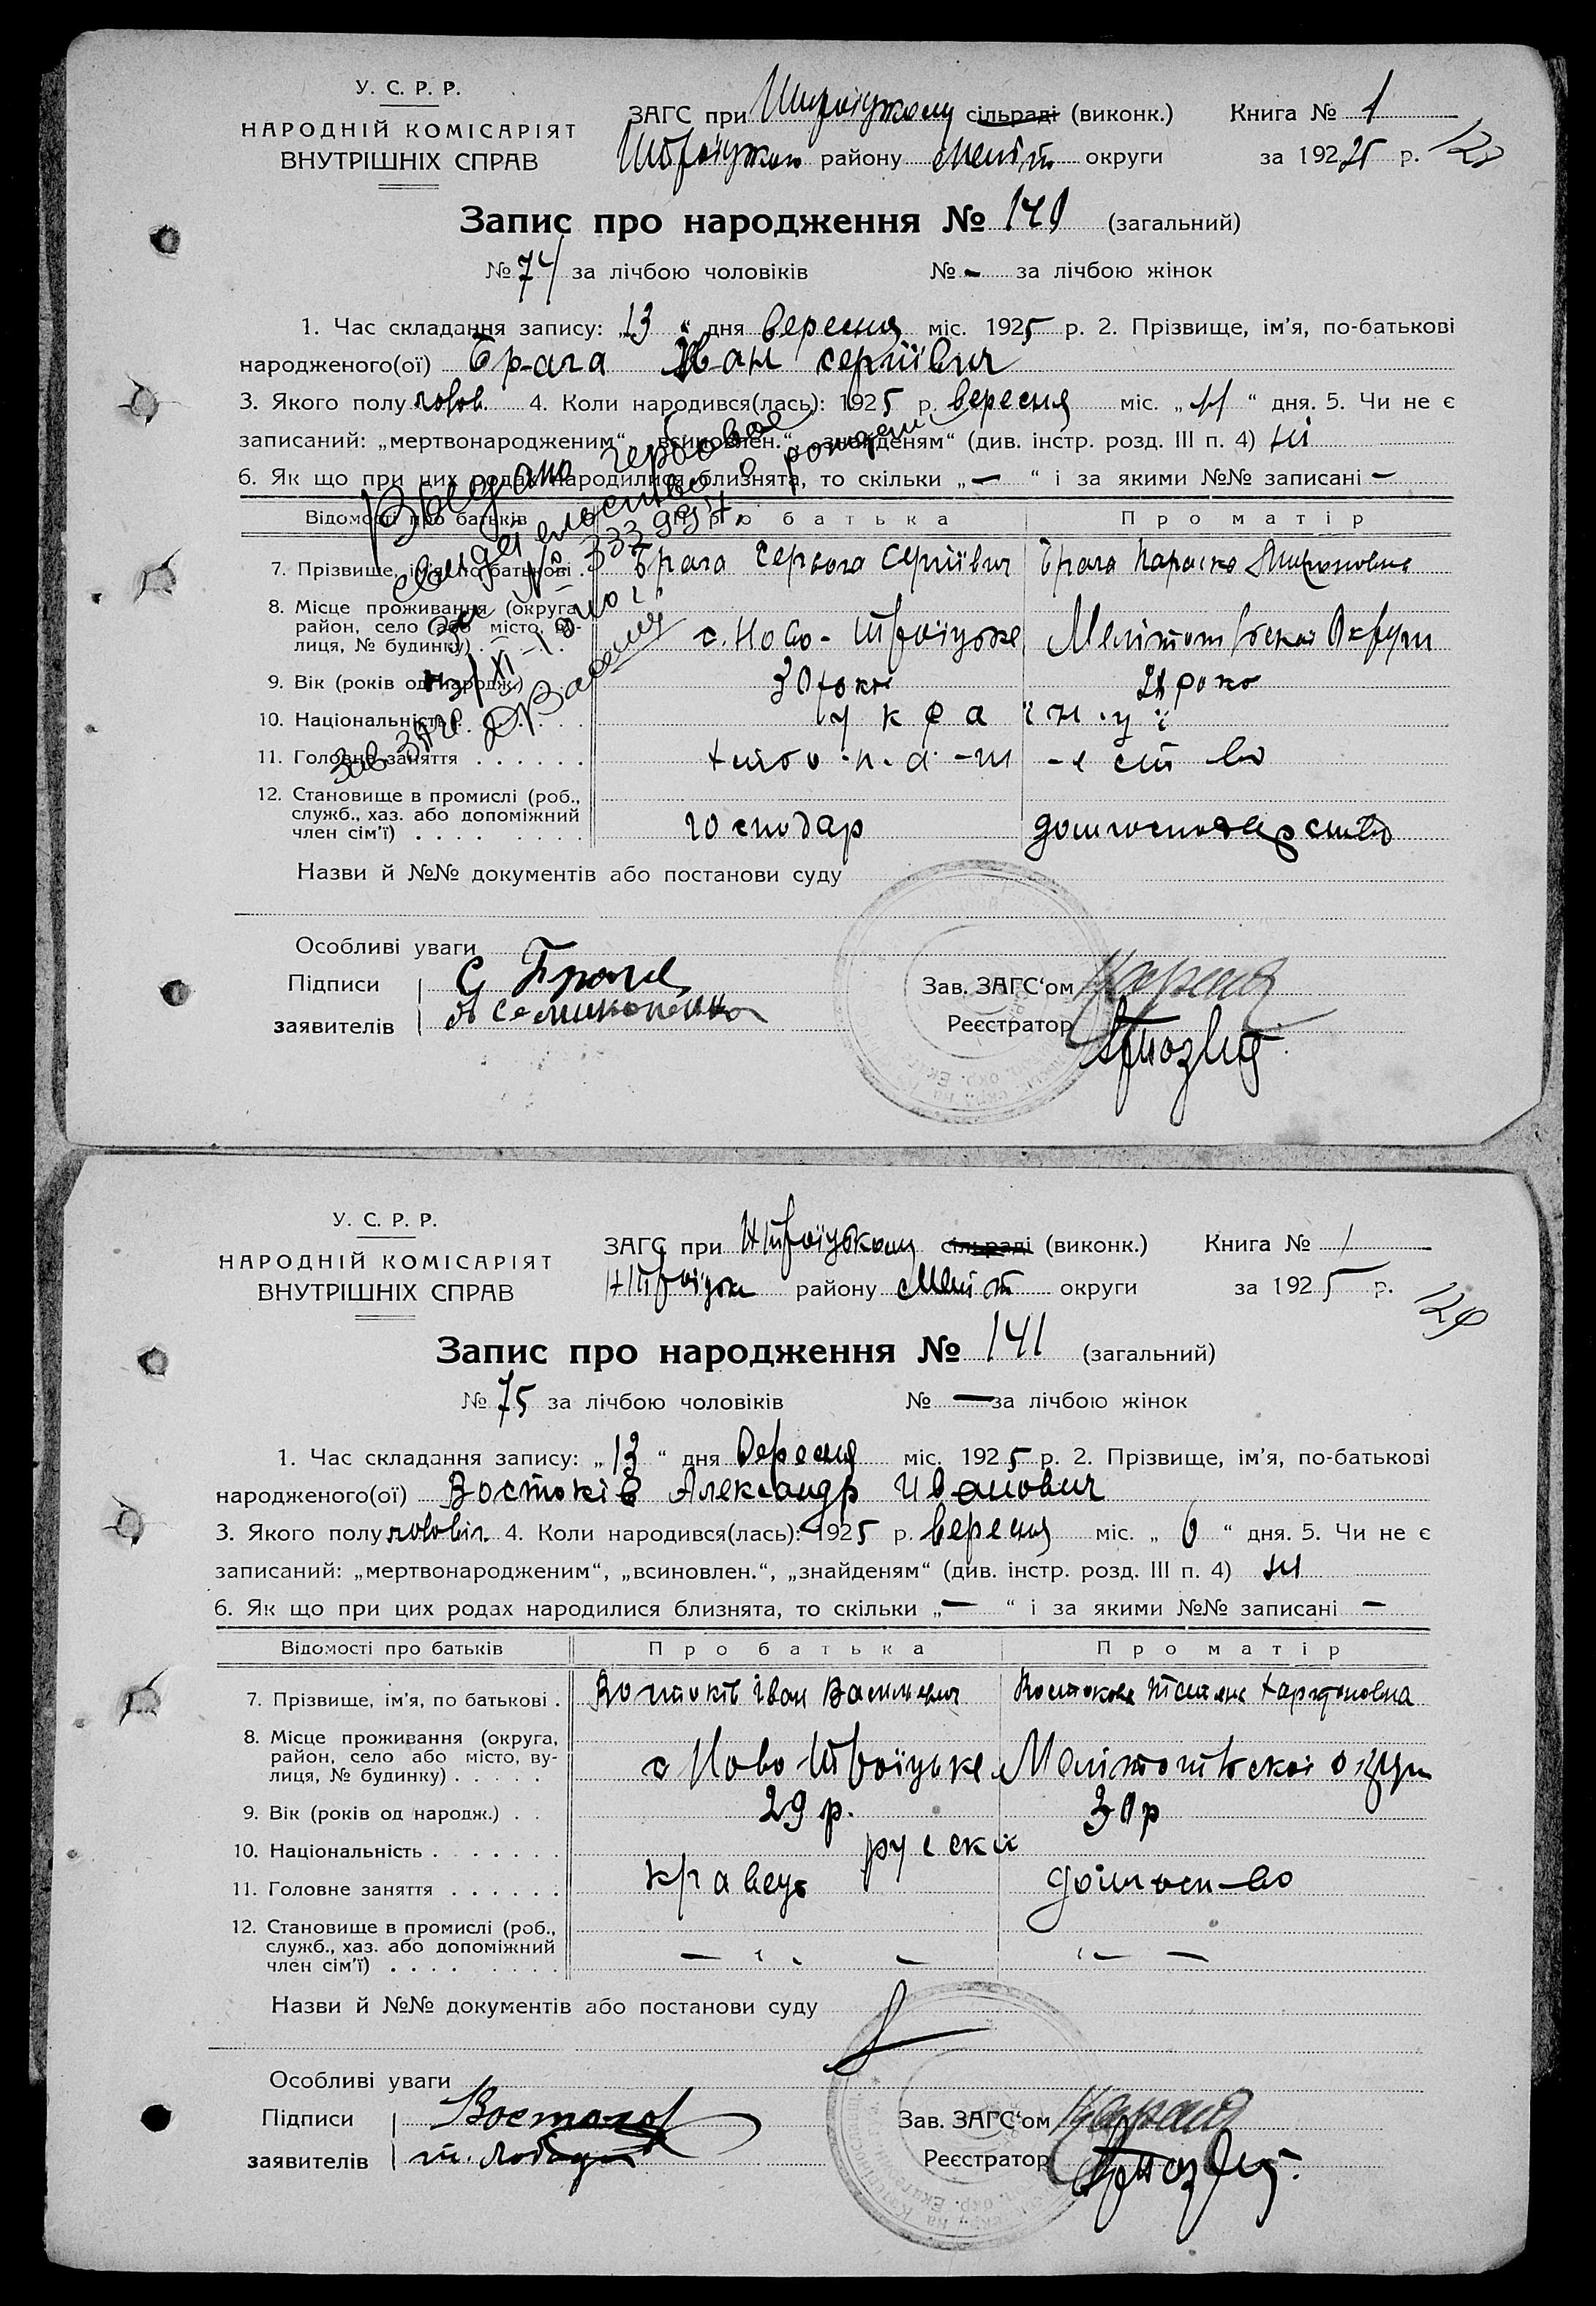 У. С. Р. Р.
НАРОДНІЙ КОМІСАРІЯТ
ВНУТРІШНІХ СПРАВ
ЗАГС при сільраді (виконк.) Книга № 1
району Меліт округи за 192 25 р.
Запис про народження № 140 (загальний)
№ 74 за лічбою чоловіків № - за лічбою жінок
1. Час складання запису: „13“ дня вересня міс. 1925 р. 2. Прізвище, ім’я, по-батькові
народженого(ої) Брага Іван Сергіївич
3. Якого полу чолов. 4. Коли народився(лась): 1925 р. вересня міс. „11“ дня. 5. Чи не є
записаний: „мертвонародженим“, „всиновлен.“, „знайденям“ (див. інстр. розд. III п. 4) ні
6. Як що при цих родах народилися близнята, то скільки „—“ і за якими №№ записані —
Выдано гербовое
свидетельство о рождении
за № 332991
Зав ЗАГС
Відомості про батьків Про батька Про матір
7. Прізвище, ім’я, по батькові . Брага Сергій Сергіївич Брага Параска
8. Місце проживання (округа,
район, село (або місто, ву-
лиця, № будинку) . . . . . с. Ново-Троїцьке Мелітопільскої Округи
9. Вік (років од народж.) 30 роки 28 роко
10. Національність . . . . . . українці
11. Головне заняття . . . . . . хлібо-п-а-ш-ество
12. Становище в промислі (роб.,
служб., хаз. або допоміжний
член сім’ї) . . . . . . . . господар домгосподарство
Назви й №№ документів або постанови суду
Особливі уваги
Підписи С Брага
заявителів
Зав. ЗАГС‘ом
Реєстратор
У. С. Р. Р.
НАРОДНІЙ КОМІСАРІЯТ
ВНУТРІШНІХ СПРАВ
ЗАГС при НТроїцькому сільраді (виконк.) Книга № 1
НТроїцьк району Меліт округи за 1925 р.
129
Запис про народження № 141 (загальний)
№ 75 за лічбою чоловіків № — за лічбою жінок
1. Час складання запису: „13“ дня Вересня міс. 1925 р. 2. Прізвище, ім’я, по-батькові
народженого(ої) Востоків Александр Иванович
3. Якого полу чоловіч. 4. Коли народився(лась): 1925 р. вересня міс. „6“ дня. 5. Чи не є
записаний: „мертвонародженим“, „всиновлен.“, „знайденям“ (див. інстр. розд. III п. 4) ні
6. Як що при цих родах народилися близнята, то скільки „—“ і за якими №№ записані —
Відомості про батьків Про батька Про матір
7. Прізвище, ім’я, по батькові . Востоків Іван Васильевич Востокова Татьяна Харитоновна
8. Місце проживання (округа,
район, село або місто, ву-
лиця, № будинку) . . . . . с Ново Троїцьке Мелітопільскої округи
9. Вік (років од народж.) . . 29 р. 30 р
10. Національність . . . . . . . русскі
11. Головне заняття . . . . . . кравець домгосп-во
12. Становище в промислі (роб.,
служб., хаз. або допоміжний
член сім’ї) . . . . . . . . — „ — — „ —
Назви й №№ документів або постанови суду
Особливі уваги
Підписи Востоков
заявителів
Зав. ЗАГС‘ом
Реєстратор